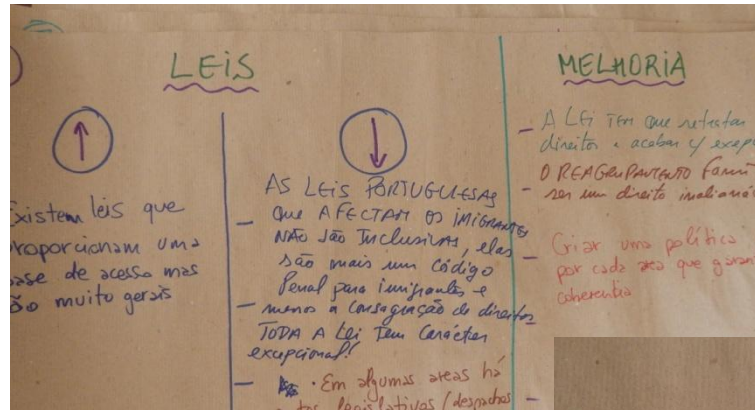 LEIS
Existem leis que
proporcionam uma
base de acesso mas
são muito gerais
AS LEIS PORTUGUESAS
que AFECTAM OS IMIGRANTES
NÃO São INclusivas, elas
são mais um código
Penal para imigrantes e
menos a consagração de direitos
TODA A Lei Tem Carácter
excepcional!
• Em algumas areas há
legislativos (despachos
MELHORIA
A LEI TEM que
direitos e acabar c/
O REAGRUPAMENTO
ser um direito
Criar uma política
por cada area que
coherentia